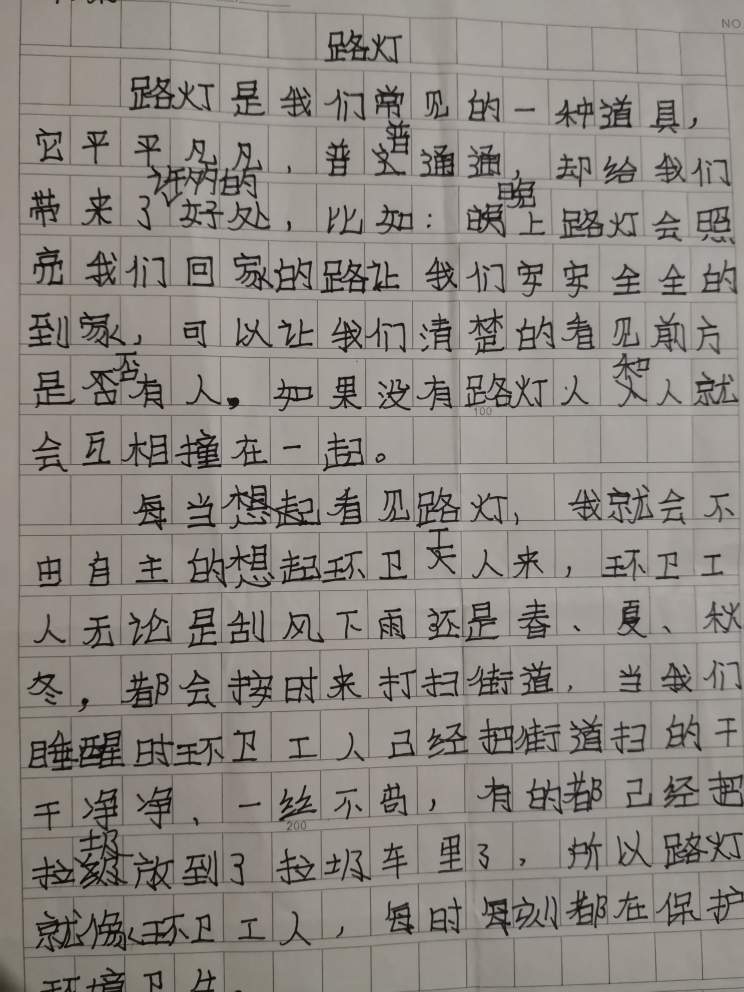 NO
路灯
路灯是我们常见的一种道具，
它平平凡凡，普普通通，却给我们
带来了许多的好处，比如：晚上路灯会照
亮我们回家的路让我们安安全全的
到家，可以让我们清楚的看见前方
是否有人。如果没有路灯人和人就
100
会互相撞在一起。
每当想起看见路灯，我就会不
由自主的想起环卫工人来，环卫工
人无论是刮风下雨还是春、夏、秋
冬，都会按时来打扫街道，当我们
睡醒时环卫工人己经把街道扫的干
干净净、一丝不苟，有的都己经把
200
垃圾放到了垃圾车里了，所以路灯
就像环卫工人，每时每刻都在保护
环境卫生。